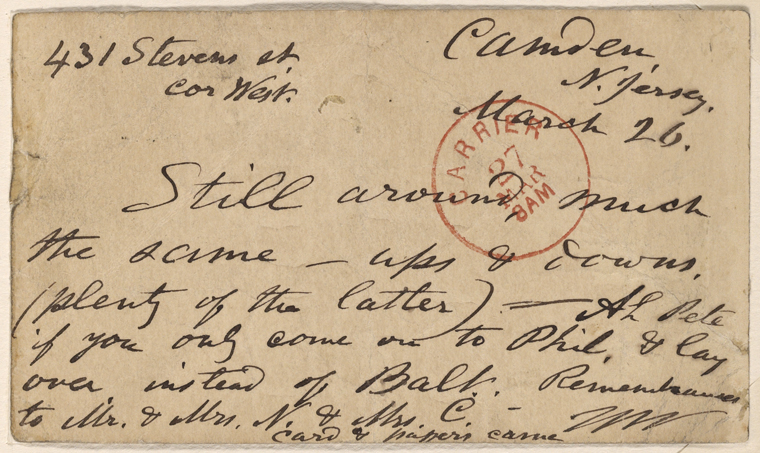 431 Stevens st
cor West.
Camden
N. Jersey.
March 26.
CARRIER
27
MAR
8AM
Still around, much
the same — ups & downs,
(plenty of the latter) — Ah Pete
if you only come on to Phil, & lay
over instead of Balt. Remembrances
to Mr. & Mrs. N. & Mrs. C. — WW
card & papers came